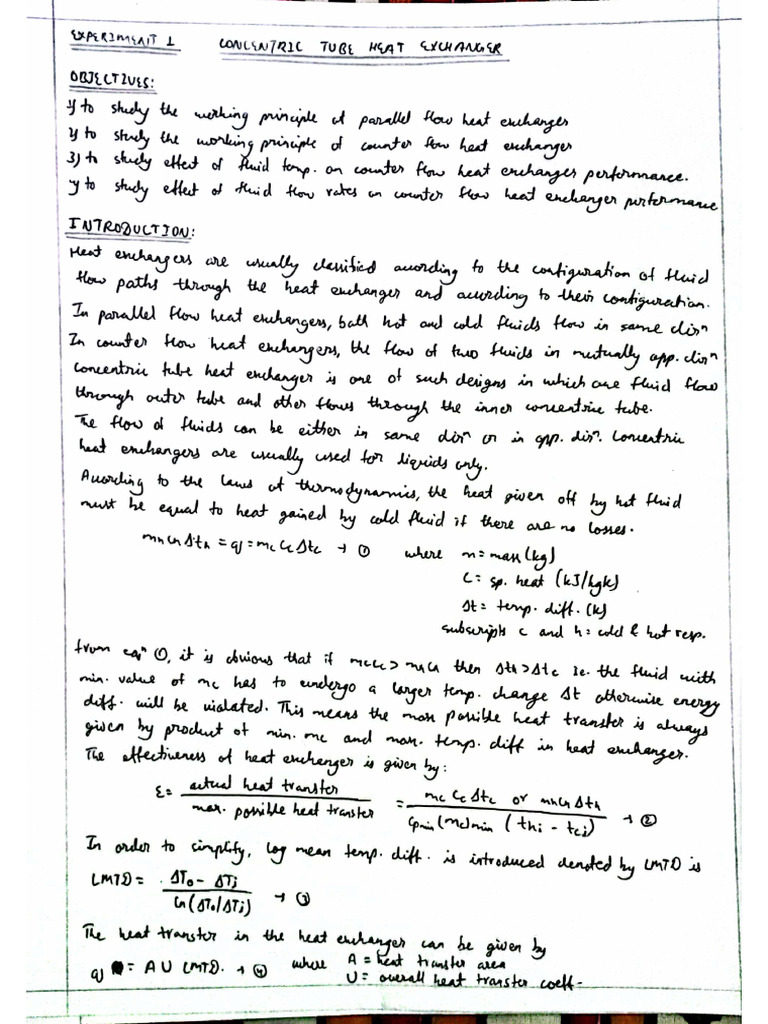 EXPERIMENT 1 CONCENTRIC TUBE HEAT EXCHANGER
OBJECTIVES:
1) to study the working principle of parallel flow heat exchanger
2) to study the working principle of counter flow heat exchanger
3) to study effect of fluid temp. on counter flow heat exchanger performance.
4) to study effect of fluid flow rates on counter flow heat exchanger performance
INTRODUCTION:
Heat exchangers are usually classified according to the configuration of fluid
flow paths through the heat exchanger and according to their configuration.
In parallel flow heat exchangers, both hot and cold fluids flow in same dirⁿ
In counter flow heat exchangers, the flow of two fluids in mutually opp. dirⁿ
Concentric tube heat exchanger is one of such designs in which one fluid flow
through outer tube and other flows through the inner concentric tube.
The flow of fluids can be either in same dirⁿ or in opp. dirⁿ. Concentric
heat exchangers are usually used for liquids only.
According to the laws of thermodynamics, the heat given off by hot fluid
must be equal to heat gained by cold fluid if there are no losses.
mhChΔth = q = mcCcΔtc → ① where m = mass (kg)
C = sp. heat (kJ/kgK)
Δt = temp. diff. (K)
subscripts c and h = cold & hot resp.
from eqⁿ ①, it is obvious that if mcCc > mhCh then Δth > Δtc ie. the fluid with
min. value of mc has to undergo a larger temp. change Δt otherwise energy
diff. will be violated. This means the max possible heat transfer is always
given by product of min. mc and max. temp. diff in heat exchanger.
The effectiveness of heat exchanger is given by:
ε = actual heat transfer / max. possible heat transfer = mc Cc Δtc or mhChΔth / Cpmin (mc)min (thi - tci) → ②
In order to simplify, log mean temp. diff. is introduced denoted by LMTD is
LMTD = ΔTo - ΔTi / ln(ΔTo/ΔTi) → ③
The heat transfer in the heat exchanger can be given by
q = A U LMTD. → ④ where A = heat transfer area
U = overall heat transfer coeff.